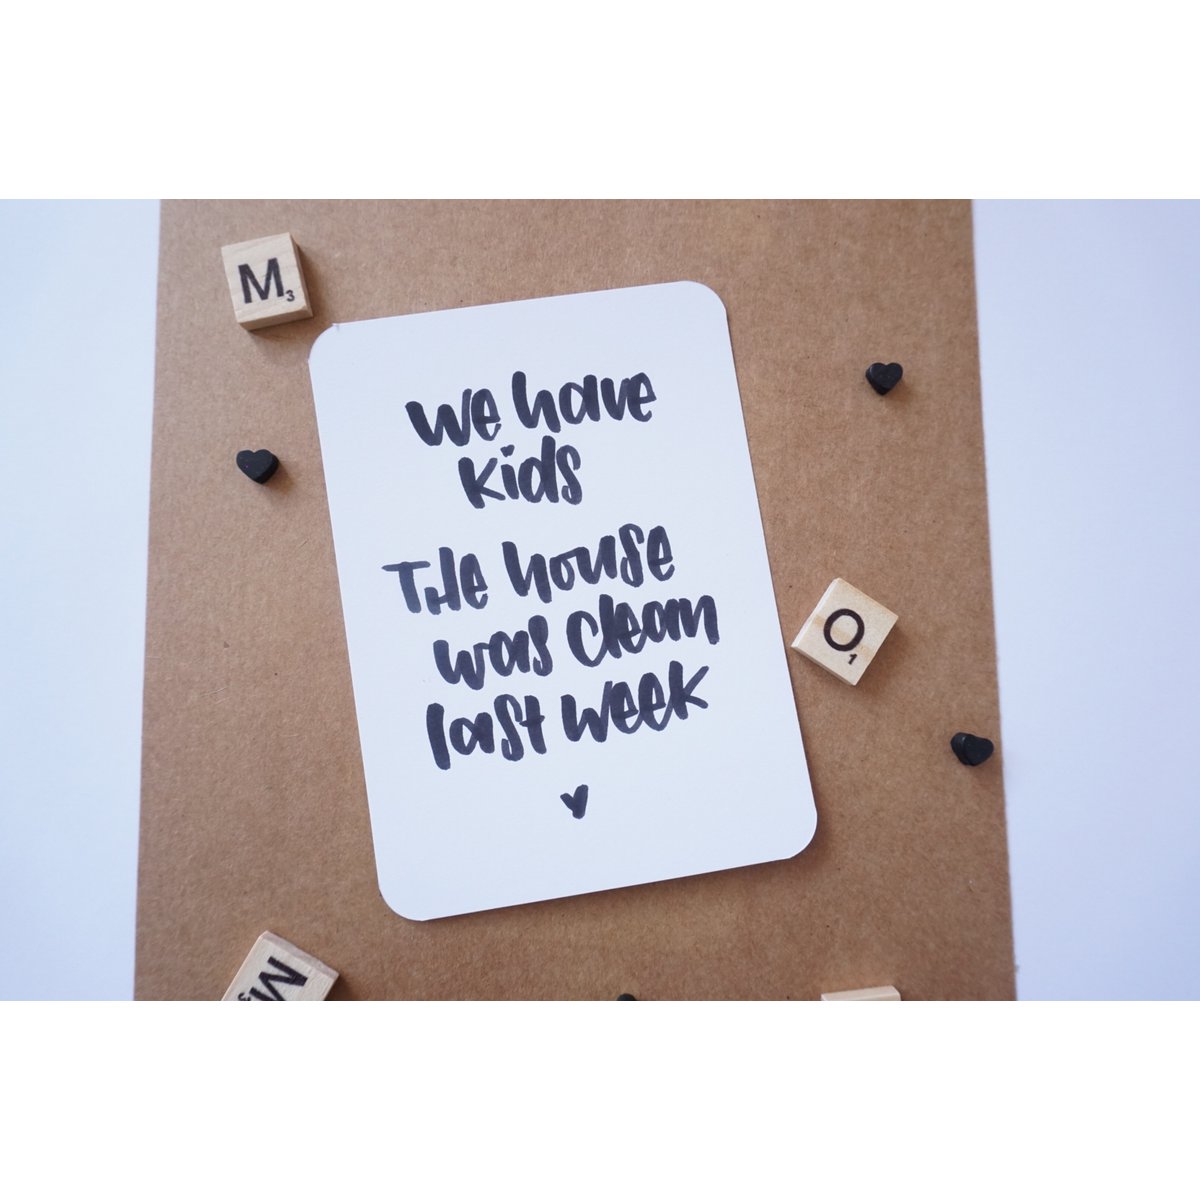 M3
we have
kids
THe house
was clean
last week
O1
M3